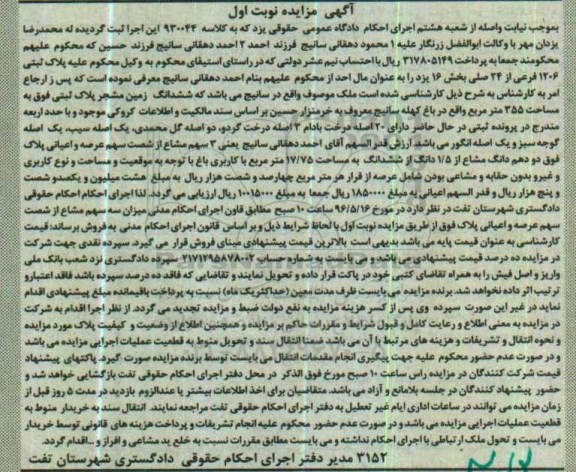 آگهی مزایده نوبت اول
بموجب نیابت واصله از شعبه هشتم اجرای احکام دادگاه عمومی حقوقی یزد که به کلاسه ۹۳۰۰۴۴ این اجرا ثبت گردیده له محمدرضا
یزدان مهر با وکالت ابوالفضل زرنگار علیه ۱ محمود دهقانی سانیج فرزند احمد ۲ احمد دهقانی سانیج فرزند حسین که محکوم علیهم
محکومند جمعا به پرداخت ۳۱۷۸۰۵۱۴۹ ریال با احتساب نیم عشر دولتی که در راستای استیفای محکوم به وکیل محکوم علیه پلاک ثبتی
۱۲۰۶ فرعی از ۲۴ صلی بخش ۱۶ یزد را به عنوان مال احد از محکوم علیهم بنام احمد دهقانی سانیج معرفی نموده است که پس ز ارجاع
امر به کارشناس به شرح ذیل کارشناسی شده است ملک موصوف واقع در سانیج می باشد که ششدانگ زمین مشجر پلاک ثبتی فوق به
مساحت ۳۵۵ متر مربع واقع در باغ کهله سانیج معروف به خرمنزار حسین بر اساس سند مالکیت و اطلاعات کروکی موجود و با حدد اربعه
مندرج در پرونده ثبتی در حال حاضر دارای ۲۰ اصله درخت بادام ۳ اصله درخت گردو، دو اصله گل محمدی، یک اصله سیب، یک اصله
گوجه سبز و یک اصله انگور می باشد ارزش قدر السهم آقای احمد دهقانی سانیج یعنی ۳ سهم مشاع از شصت سهم عرصه و اعیانی پلاک
فوق دو دهم دانگ مشاع از ۱/۵ دانگ از ششدانگ به مساحت ۱۷/۷۵ متر مربع با کاربری باغ با توجه به موقعیت و مساحت و نوع کاربری
و غیره بدون حقابه و مشاعی بودن شامل عرصه از قرار هر متر مربع چهارصد و شصت هزار ریال به مبلغ هشت میلیون و یکصدو شصت
و پنج هزار ریال و قدر السهم اعیانی به مبلغ ۱۸۵۰۰۰۰ ریال جمعا به مبلغ ۱۰۰۱۵۰۰۰ ریال ارزیابی می گردد. لذا اجرای احکام حقوقی
دادگستری شهرستان تفت در نظر دارد در مورخ ۹۶/۵/۱۶ ساعت ۱۰ صبح مطابق قانون اجرای احکام مدنی میزان سه سهم مشاع از شصت
سهم عرصه و اعیانی پلاک فوق از طریق مزایده نوبت اول با لحاظ شرایط ذیل و بر اساس قانون اجرای احکام مدنی به فروش برساند: قیمت
کارشناسی به عنوان قیمت پایه می باشد بدیهی است بالاترین قیمت پیشنهادی مبنای فروش قرار می گیرد. سپرده نقدی جهت شرکت
در مزایده ده درصد قیمت پیشنهادی می باشد و می بایست به شماره حساب ۲۱۷۱۲۹۵۸۷۸۰۰۲ سپرده دادگستری نزد شعب بانک ملی
واریز و اصل فیش را به همراه تقاضای کتبی خود در پاکت قرار داده و تحویل نمایند و تقاضایی که فاقد ده درصد سپرده باشد فاقد اعتبار و
ترتیب اثر داده نخواهد شد. برنده مزایده می بایست ظرف مدت معین (حداکثر یک ماه) نسبت به پرداخت باقیمانده مبلغ پیشنهادی اقدام
نماید در غیر این صورت سپرده وی پس از کسر هزینه مزایده به نفع دولت ضبط و مزایده تجدید می گردد. از نظر اجرا اقدام به شرکت
در مزایده به معنی اطلاع و رعایت کامل و قبول شرایط و مقررات حاکم بر مزایده و همچنین اطلاع از وضعیت و کیفیت پلاک مورد مزایده
و نحوه انتقال و تشریفات و هزینه های مرتبط با آن می باشد ضمنا انتقال سند و تحویل منوط به قطعیت عملیات اجرایی مزایده می باشد
و در صورت عدم حضور محکوم علیه جهت پیگیری انجام مقدمات انتقال می بایست توسط برنده مزایده صورت گیرد. پاکتهای پیشنهاد
قیمت شرکت کنندگان در مزایده راس ساعت ۱۰ صبح مورخ فوق الذکر در محل دفتر اجرای احکام حقوقی تفت بازگشایی خواهد شد و
حضور پیشنهاد کنندگان در جلسه بلامانع و آزاد می باشد. متقاضیان برای اخذ اطلاعات بیشتر یا عندالزوم بازدید در مدت ۵ روز قبل از
زمان مزایده می توانند در ساعات اداری ایام غیر تعطیل به دفتر اجرای احکام حقوقی تفت مراجعه نمایند. انتقال سند به خریدار منوط به
قطعیت عملیات اجرایی مزایده می باشد و در صورت عدم حضور محکوم علیه انجام تشریفات و پرداخت هزینه های قانونی توسط خریدار
می بایست و تحول ملک ارتباطی با اجرای احکام نداشته و می بایست مطابق مقررات نسبت به خلع ید مشاعی و افراز و ...اقدام گردد.
۳۱۵۲ مدیر دفتر اجرای احکام حقوقی دادگستری شهرستان تفت